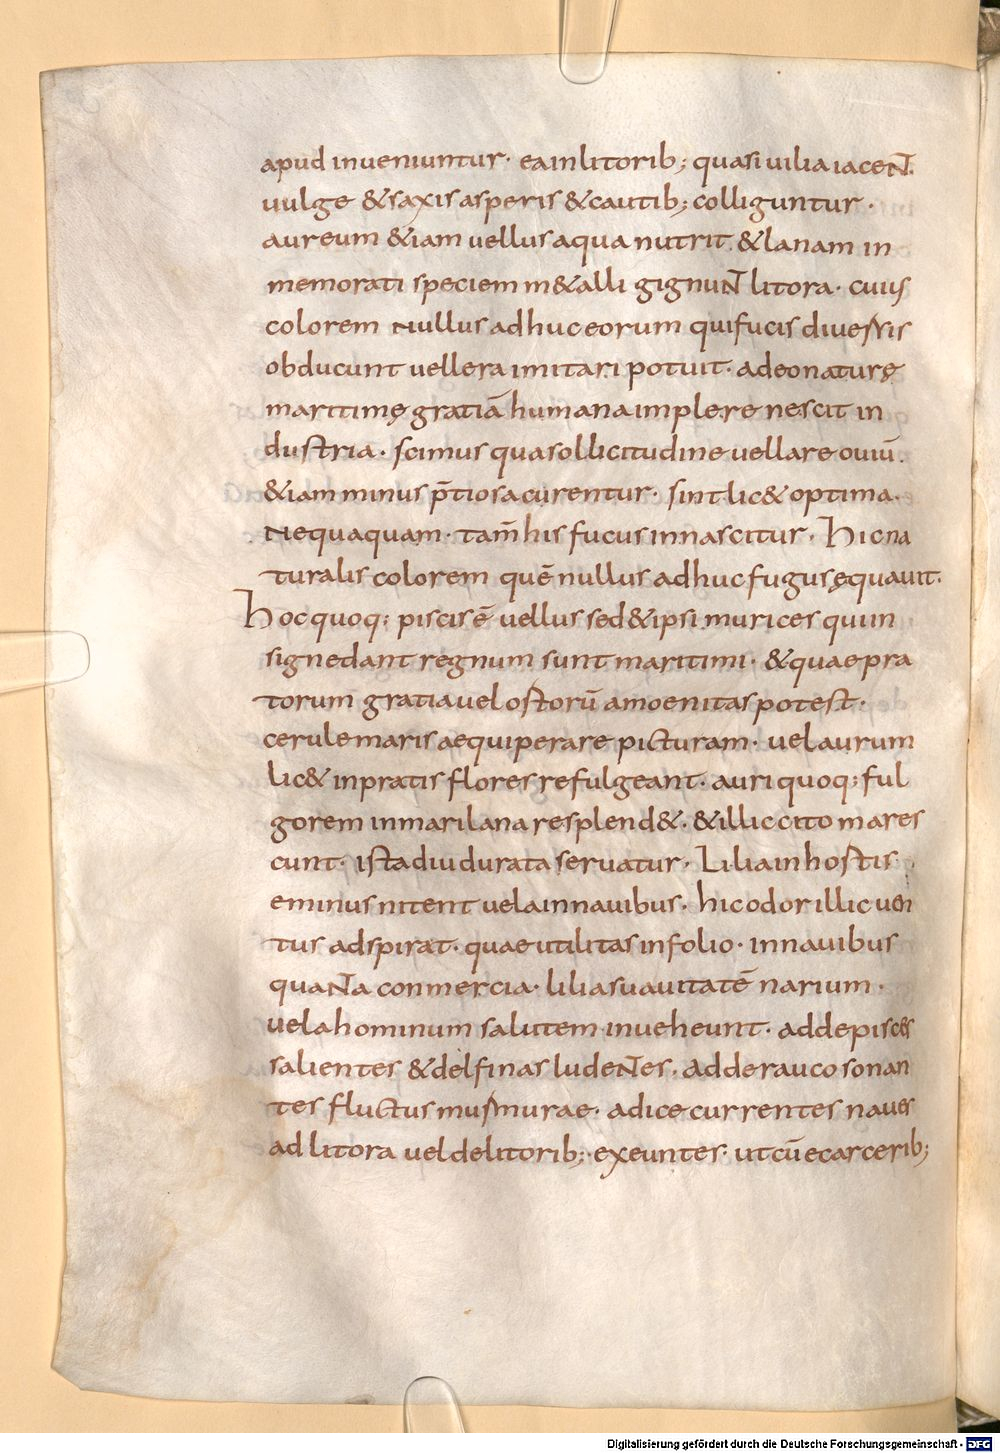 apud inueniuntur· ea in litorib; quasi uilia iacent.
uulge & saxis asperis & cautib; colliguntur·
aureum &iam uellus aqua nutrit. & lanam in
memorati speciem m&alli gignunt litora· cuius
colorem nullus adhuc eorum qui fucis diuersis
obducunt uellera imitari potuit· adeo naturę
maritimę gratiā humana implere nescit in
dustria· scimus qua sollicitudine uellare ouiū.
&iam minus p̄tiosa curentur· sint lic& optima.
nequaquam· tam̄ his fucus innascitur. Hic na
turalis colorem quē nullus adhuc fugus ęquauit.
Hoc quoq; piscis ē uellus sed & ipsi murices quiin
signe dant regnum sunt maritimi· & quae pra
torum gratia uel ostorū amoenitas potest·
cerule maris aequiperare picturam· uel aurum
lic& in pratis flores refulgeant· auri quoq; ful
gorem in mari lana resplend&. & illic cito mares
cunt· ista diu durata seruatur. Lilia in hostis
eminus nitent uela in nauibus. hic odor illic uen
tus adspirat· quae utilitas in folio· in nauibus
quanta conmercia· lilia suauitatē narium·
uela hominum salutem inueheunt· adde pisces
salientes & delfinas ludentes. adde rauco sonan
tes fluctus musmurae· adice currentes naues
ad litora uel de litorib; exeuntes· ut cū e carcerib;
Digitalisierung gefördert durch die Deutsche Forschungsgemeinschaft - DFG